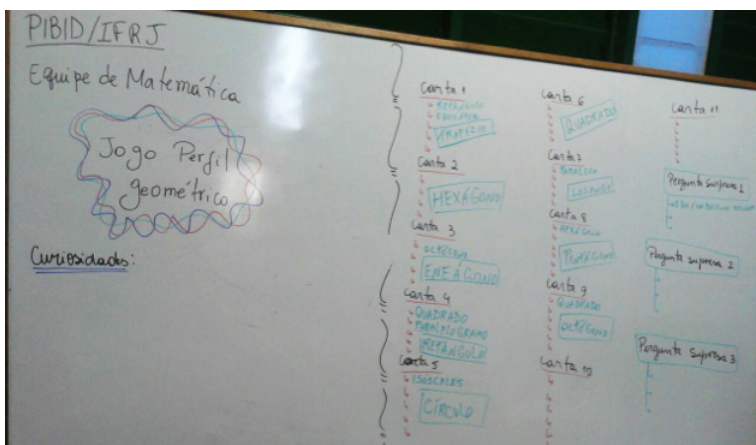 PIBID/IFRJ
Equipe de Matemática
Jogo Perfil
geométrico
Curiosidades:
Carta 1
RETÂNGULO
TRAPÉZIO
Carta 2
HEXÁGONO
Carta 3
OCTÓGONO
ENEÁGONO
Carta 4
QUADRADO
PARALELOGRAMO
RETÂNGULO
Carta 5
ISÓSCELES
CÍRCULO
Carta 6
QUADRADO
Carta 7
LOSANGO
Carta 8
HEXÁGONO
PENTÁGONO
Carta 9
QUADRADO
OCTÓGONO
Carta 10
Carta 11
Pergunta surpresa 1
Pergunta supresa 2
Pergunta supresa 3